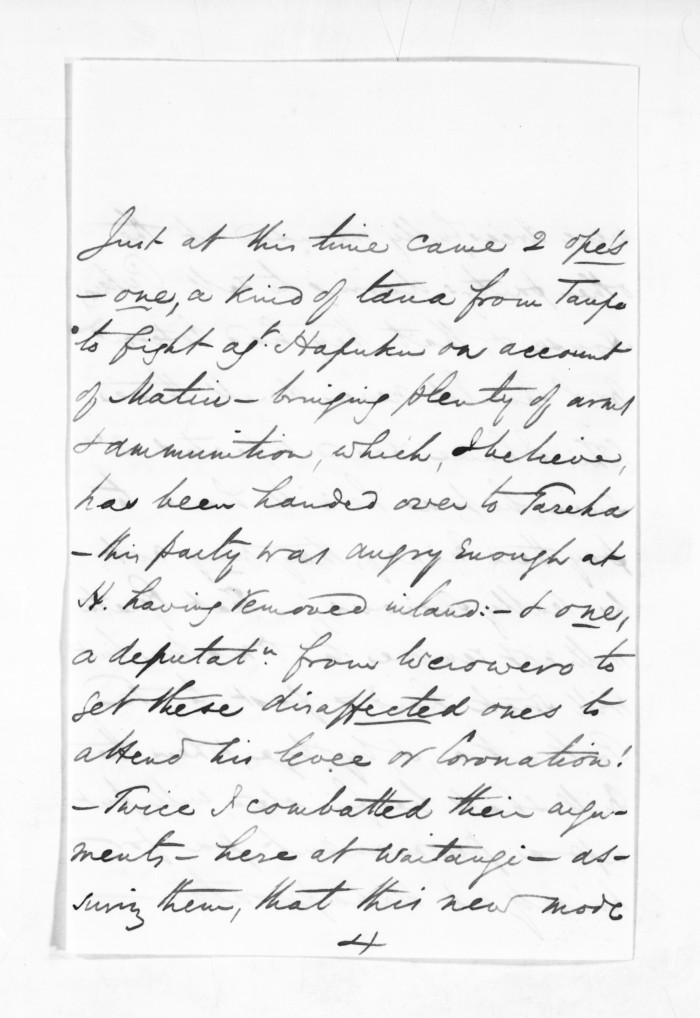 Just at this time came 2 ope's
- one, a kind of taua from Taupo
to fight agt. Hapuku on account
of Matiu - bringing plenty of arms
& ammunition, which, I believe,
has been handed over to Tareha
- this party was angry enough at
H. having removed inland: - & one,
a deputatn. from Werowero to
get these disaffected ones to
attend his levee or Coronation!
- Twice I combatted their argu-
ments - here at Waitangi - as-
suring them, that this new mode
4